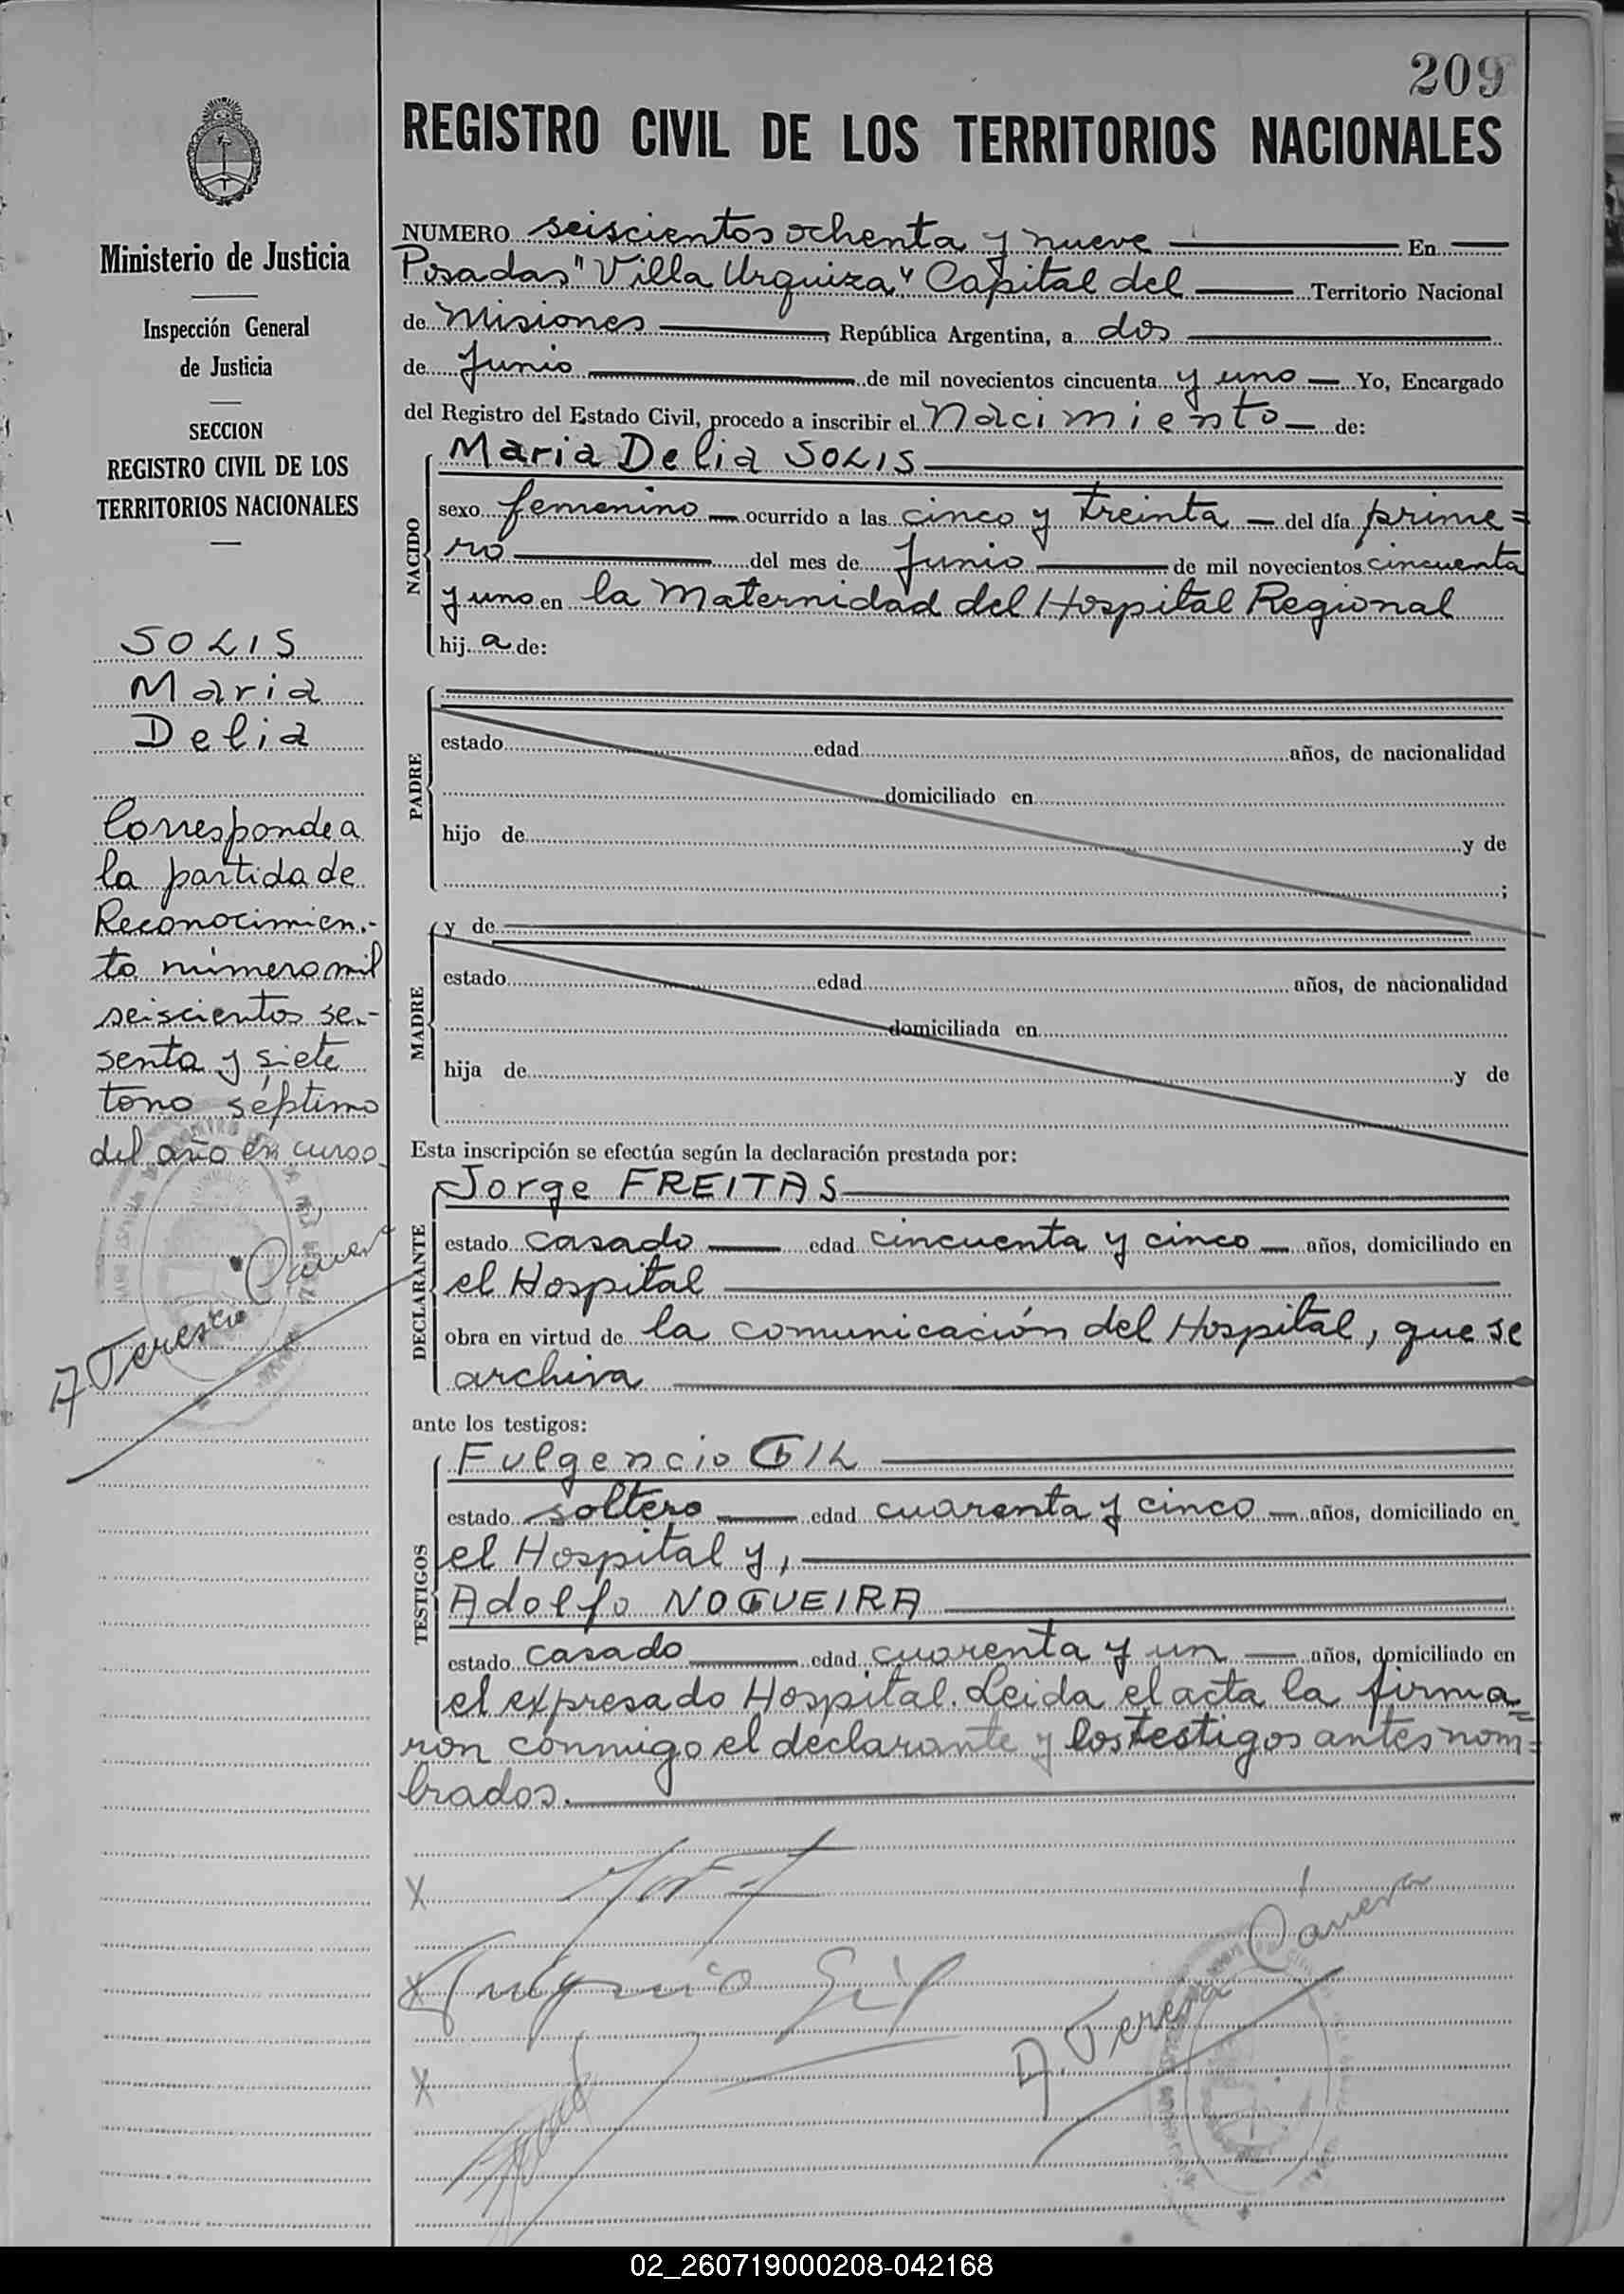 209
REGISTRO CIVIL DE LOS TERRITORIOS NACIONALES
Ministerio de Justicia
Inspección General
de Justicia
SECCION
REGISTRO CIVIL DE LOS
TERRITORIOS NACIONALES
SOLIS
Maria
Delia
Corresponde a
la partida de
Reconocimien-
to número mil
seiscientos se-
senta y siete
tomo séptimo
del año en curso
A. Teresa Cavera
NUMERO seiscientos ochenta y nueve En
Posadas "Villa Urquiza" Capital del Territorio Nacional
de Misiones República Argentina, a dos
de Junio de mil novecientos cincuenta y uno Yo, Encargado
del Registro del Estado Civil, procedo a inscribir el Nacimiento de:
NACIDO
Maria Delia SOLIS
sexo femenino ocurrido a las cinco y treinta del día prime=
ro del mes de Junio de mil novecientos cincuenta
y uno en la Maternidad del Hospital Regional
hij a de:
PADRE
estado edad años, de nacionalidad
domiciliado en
hijo de y de
;
MADRE
y de
estado edad años, de nacionalidad
domiciliada en
hija de y de
Esta inscripción se efectúa según la declaración prestada por:
DECLARANTE
Jorge FREITAS
estado casado edad cincuenta y cinco años, domiciliado en
el Hospital
obra en virtud de la comunicación del Hospital, que se
archiva
ante los testigos:
TESTIGOS
Fulgencio GIL
estado soltero edad cuarenta y cinco años, domiciliado en
el Hospital y,
Adolfo NOGUEIRA
estado casado edad cuarenta y un años, domiciliado en
el expresado Hospital. Leida el acta la firma=
ron conmigo el declarante y los testigos antes nom=
brados.
X
X Fulgencio Gil
X
A. Teresa Cavera
02_260719000208-042168